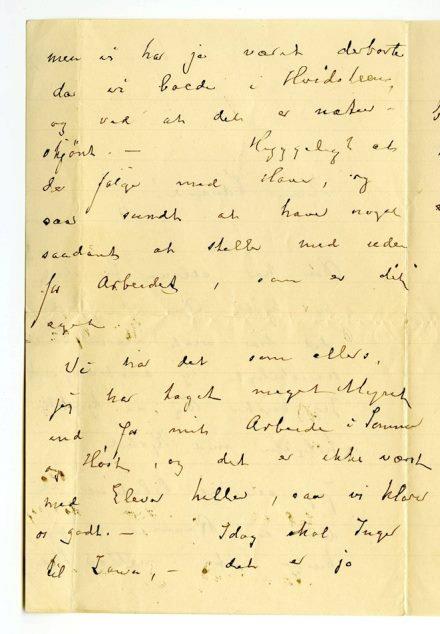 men vi har jo været derborte
da vi boede i Hvidsteen,
og ved at det er natur-
skjönt. – Hyggeligt at
der følger med Have, og
saa sundt at have noget
saadant at stelle med uden
for Arbeidet, som er dit
eget.
Vi har det som ellers,
jeg har taget meget Mynt
ind for mit Arbeide i Sommer
og Høst, og det er ikke værst
med Elever heller, saa vi klarer
os godt. – Idag skal Inger
til – det er jo